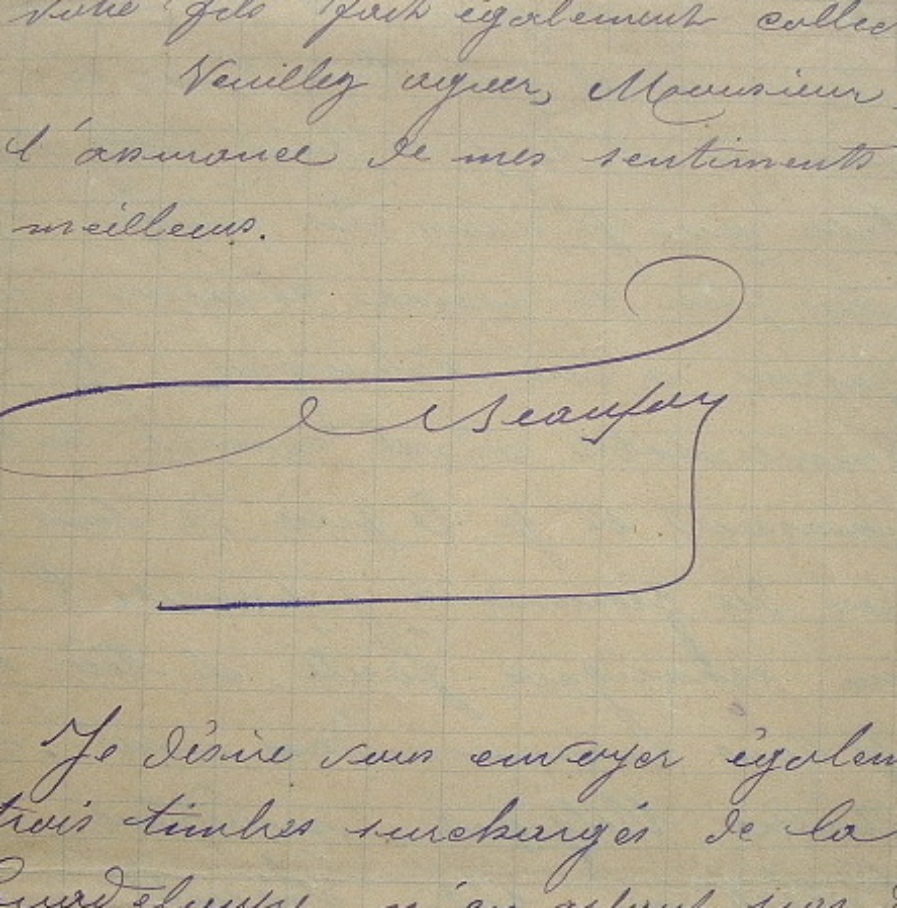 votre fils fait également collec
Veuillez agréer, Monsieur
l'assurance de mes sentiments
meilleurs.
Beaufour
Je désire vous envoyer égalem
trois timbres surchargés de la
Guadeloupe, n'en ayant pas